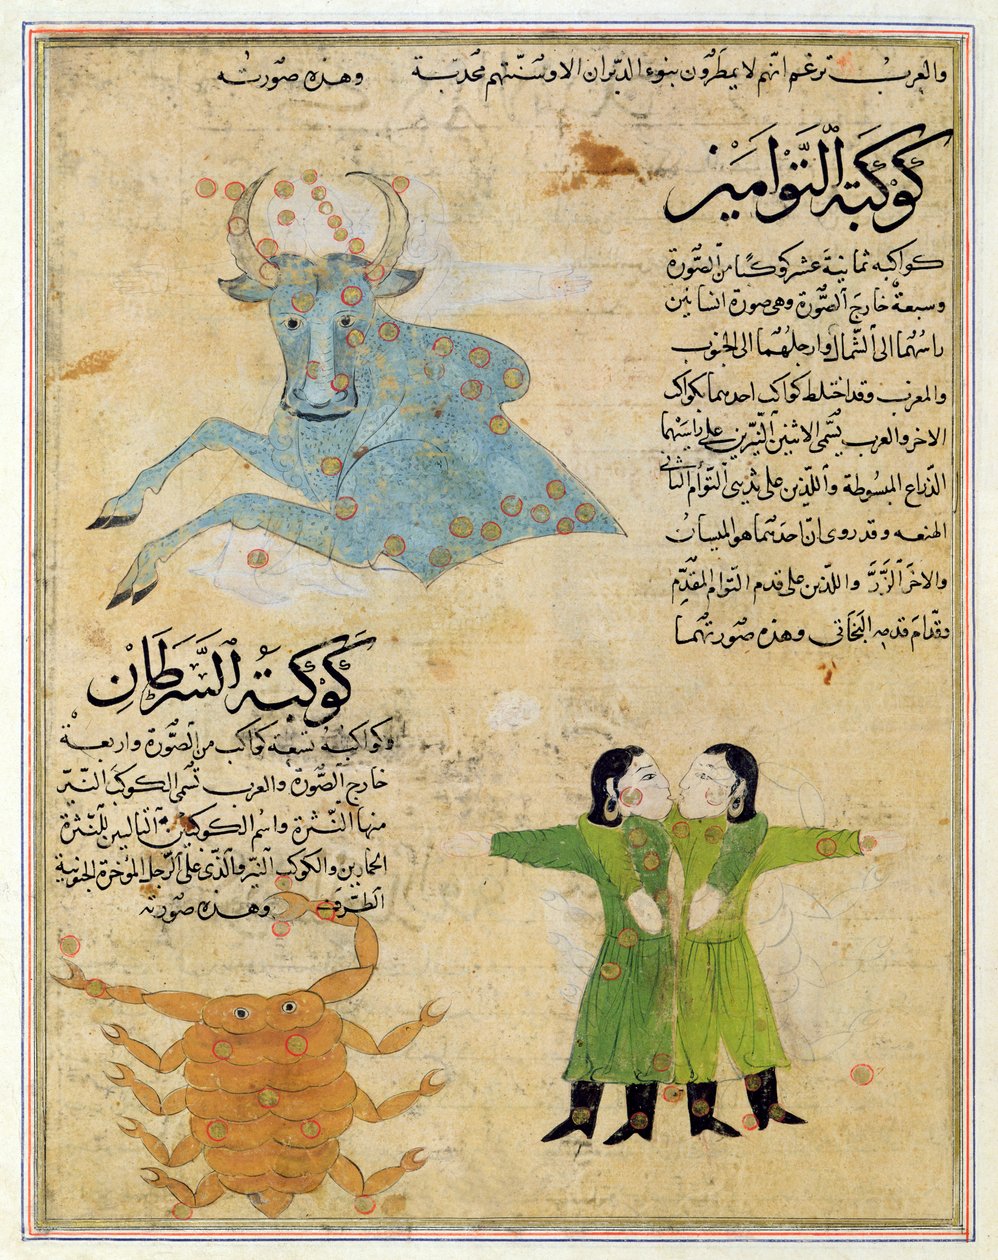 والعرب تزعم انهم لا يمطرون بنوء الدبران الا وسنتهم مجدبة وهذه صورته
كَوْكَبَةُ التَّوْأَمَيْنِ
كواكبه ثمانية عشر كوكبًا من الصّورة
وسبعة خارج الصّورة وهى صورة انسانين
راسهما الى الشّمال وارجلهما الى الجنوب
والمغرب وقد اختلط كواكب احدهما بكواكب
الاخر والعرب يسمّى الاثنين النّيرين على راسهما
الذّراع المبسوطة واللّذين على ثديى التّوأم الثانى
الهنعه وقد روى انّ احدهما هو الميسان
والاخر الزّرّ واللّذين على قدم التّوام المقدّم
وقدّام قدمه البخاتى وهذه صورتهما
كَوْكَبَةُ السَّرَطَانِ
وكواكبه تسعة كواكب من الصّورة واربعة
خارج الصّورة والعرب تسمى الكوكب النّيّر
منها النّثرة واسم الكوكبين التاليين للنّثرة
الحمارين والكوكب النّيّر والّذى على الرّجل المؤخرة الجنوبية
الطّرف وهذه صورته